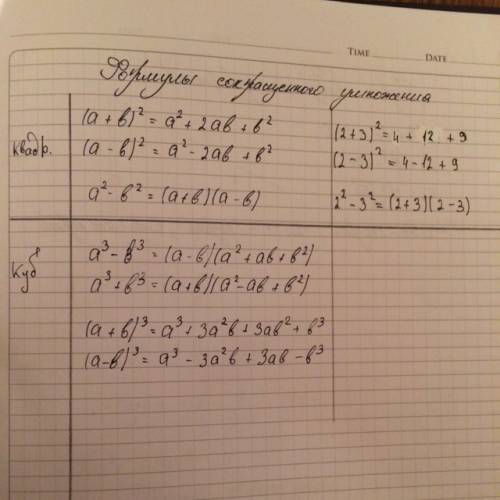 TIME DATE
Формулы сокращенного умножения
Квадр.
(a + b)² = a² + 2ab + b²
(a - b)² = a² - 2ab + b²
a² - b² = (a+b)(a - b)
(2+3)² = 4 + 12 + 9
(2-3)² = 4 - 12 + 9
2² - 3² = (2+3)(2-3)
Куб
a³ - b³ = (a-b)(a² + ab + b²)
a³ + b³ = (a+b)(a² - ab + b²)
(a+b)³ = a³ + 3a²b + 3ab² + b³
(a-b)³ = a³ - 3a²b + 3ab - b³